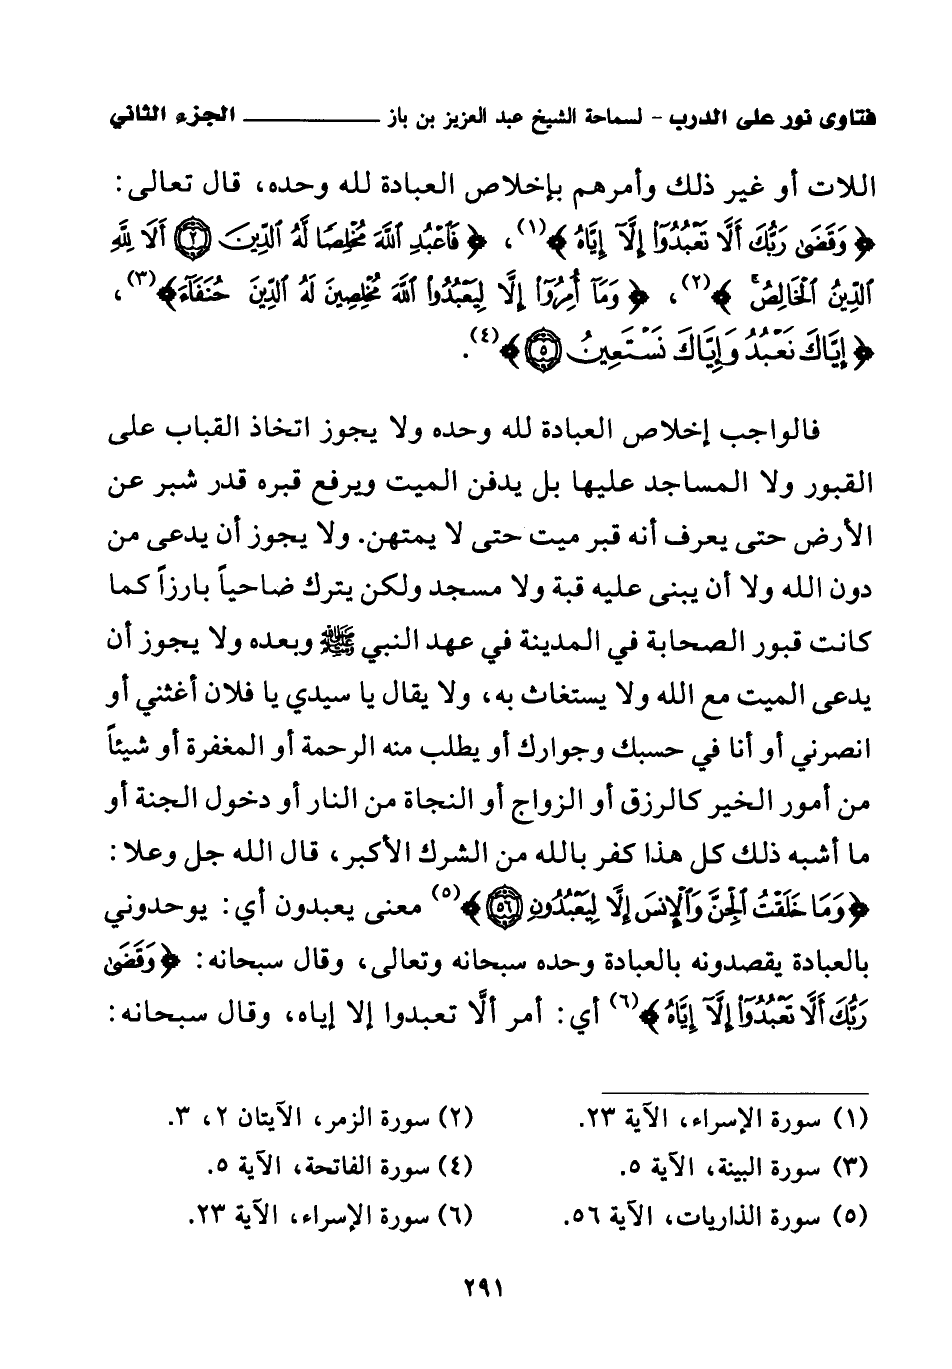 فتاوى نور على الدرب - لسماحة الشيخ عبد العزيز بن باز ــــــــــــــ الجزء الثاني
اللات أو غير ذلك وأمرهم بإخلاص العبادة لله وحده، قال تعالى:
﴿ وَقَضَىٰ رَبُّكَ أَلَّا تَعْبُدُوٓا۟ إِلَّآ إِيَّاهُ ﴾(١)، ﴿ فَٱعْبُدِ ٱللَّهَ مُخْلِصًا لَّهُ ٱلدِّينَ ۝٢ أَلَا لِلَّهِ
ٱلدِّينُ ٱلْخَالِصُ ۚ ﴾(٢)، ﴿ وَمَآ أُمِرُوٓا۟ إِلَّا لِيَعْبُدُوا۟ ٱللَّهَ مُخْلِصِينَ لَهُ ٱلدِّينَ حُنَفَآءَ﴾(٣)،
﴿ إِيَّاكَ نَعْبُدُ وَإِيَّاكَ نَسْتَعِينُ ۝٥ ﴾(٤).
فالواجب إخلاص العبادة لله وحده ولا يجوز اتخاذ القباب على
القبور ولا المساجد عليها بل يدفن الميت ويرفع قبره قدر شبر عن
الأرض حتى يعرف أنه قبر ميت حتى لا يمتهن. ولا يجوز أن يدعى من
دون الله ولا أن يبنى عليه قبة ولا مسجد ولكن يترك ضاحياً بارزاً كما
كانت قبور الصحابة في المدينة في عهد النبي ﷺ وبعده ولا يجوز أن
يدعى الميت مع الله ولا يستغاث به، ولا يقال يا سيدي يا فلان أغثني أو
انصرني أو أنا في حسبك وجوارك أو يطلب منه الرحمة أو المغفرة أو شيئاً
من أمور الخير كالرزق أو الزواج أو النجاة من النار أو دخول الجنة أو
ما أشبه ذلك كل هذا كفر بالله من الشرك الأكبر، قال الله جل وعلا:
﴿ وَمَا خَلَقْتُ ٱلْجِنَّ وَٱلْإِنسَ إِلَّا لِيَعْبُدُونِ ۝٥٦ ﴾(٥) معنى يعبدون أي: يوحدوني
بالعبادة يقصدونه بالعبادة وحده سبحانه وتعالى، وقال سبحانه: ﴿ وَقَضَىٰ
رَبُّكَ أَلَّا تَعْبُدُوٓا۟ إِلَّآ إِيَّاهُ ﴾(٦) أي: أمر ألَّا تعبدوا إلا إياه، وقال سبحانه:
(١) سورة الإسراء، الآية ٢٣. (٢) سورة الزمر، الآيتان ٢، ٣.
(٣) سورة البينة، الآية ٥. (٤) سورة الفاتحة، الآية ٥.
(٥) سورة الذاريات، الآية ٥٦. (٦) سورة الإسراء، الآية ٢٣.
٢٩١